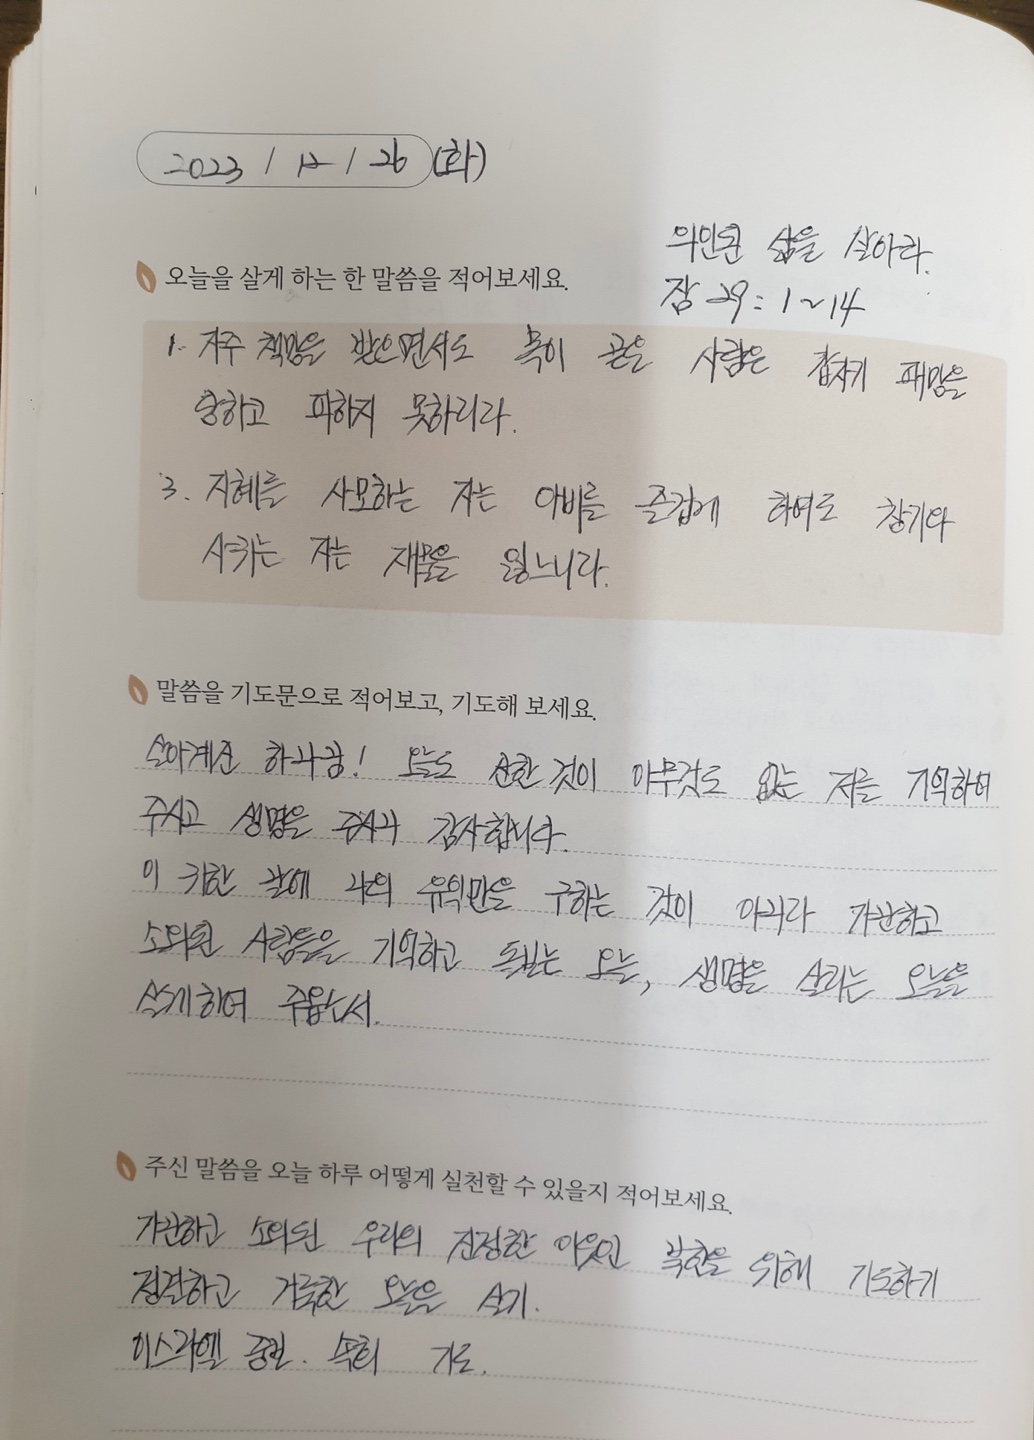 2023 / 12 / 26 (화)
의인된 삶을 살아라.
오늘을 살게 하는 한 말씀을 적어보세요.
잠 29: 1~14
1. 자주 책망을 받으면서도 목이 곧은 사람은 갑자기 패망을
당하고 피하지 못하리라.
3. 지혜를 사모하는 자는 아비를 즐겁게 하여도 창기와
사귀는 자는 재물을 잃느니라.
말씀을 기도문으로 적어보고, 기도해 보세요.
살아계신 하나님! 오늘도 선한 것이 아무것도 없는 저를 기억하여
주시고 생명을 주시니 감사합니다.
이 귀한 날에 나의 유익만을 구하는 것이 아니라 가난하고
소외된 사람들을 기억하고 돕는 오늘, 생명을 살리는 오늘을
살게하여 주옵소서.
주신 말씀을 오늘 하루 어떻게 실천할 수 있을지 적어보세요.
가난하고 소외된 우리의 진정한 이웃인 북한을 위해 기도하기
정결하고 거룩한 오늘을 살기.
이스라엘 중보. 속회 기도.